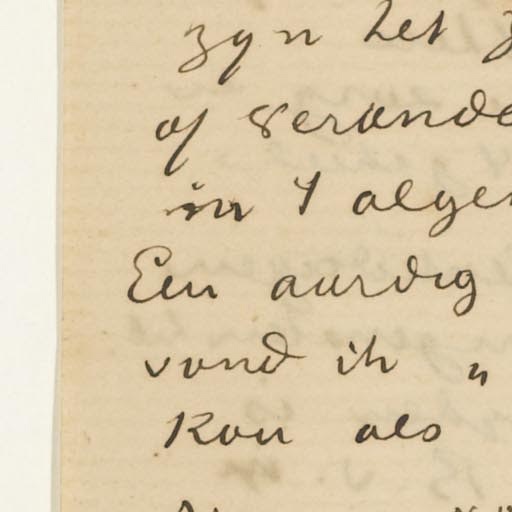 zyn het
of verande
in 't algem
Een aardig
vond ik "
Kon als